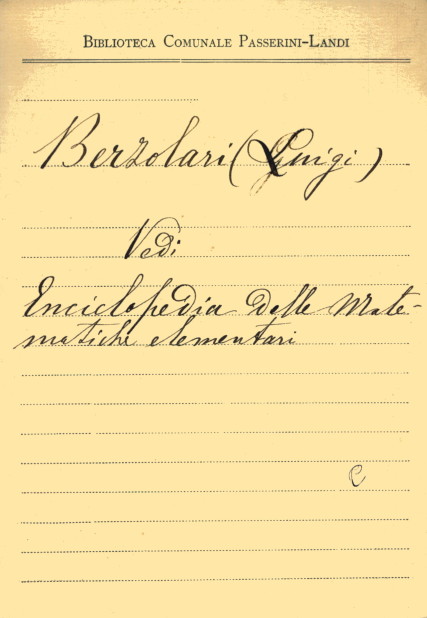 BIBLIOTECA COMUNALE PASSERINI-LANDI
Berzolari (Luigi)
Vedi
Enciclopedia delle Mate-
matiche elementari
C